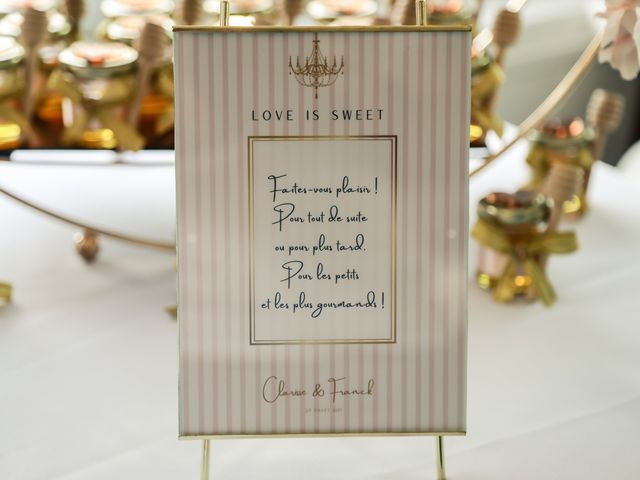 LOVE IS SWEET
Faites-vous plaisir !
Pour tout de suite
ou pour plus tard.
Pour les petits
et les plus gourmands !
Clarisse & Franck